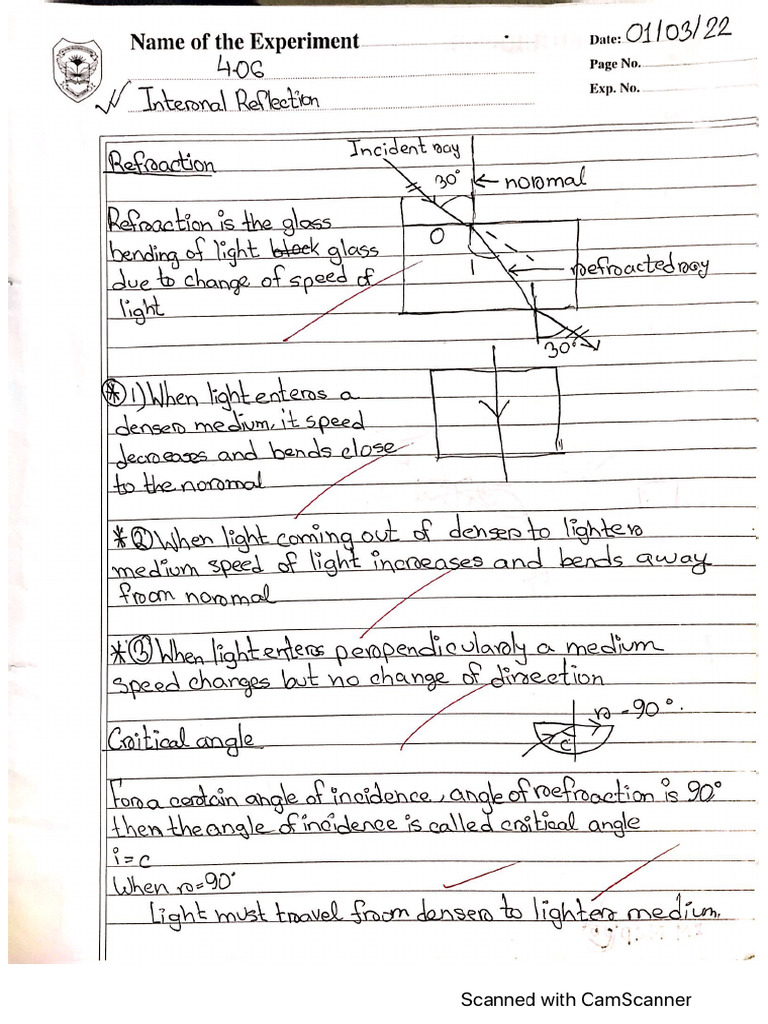 Name of the Experiment
Date: 01/03/22
4.06
Page No.
Internal Reflection
Exp. No.
Incident ray
Refraction
30°
normal
Refraction is the glass
bending of light block glass
O
due to change of speed of
refracted ray
light
30°
1) When light enters a
denser medium, it speed
decreases and bends close
to the normal
* 2 When light coming out of denser to lighter
medium speed of light increases and bends away
from normal
* 3 When light enters perpendicularly a medium
speed changes but no change of direction
r = 90°.
Critical angle
c
For a certain angle of incidence, angle of refraction is 90°
then the angle of incidence is called critical angle
i = c
When r = 90°
Light must travel from denser to lighter medium.
Scanned with CamScanner